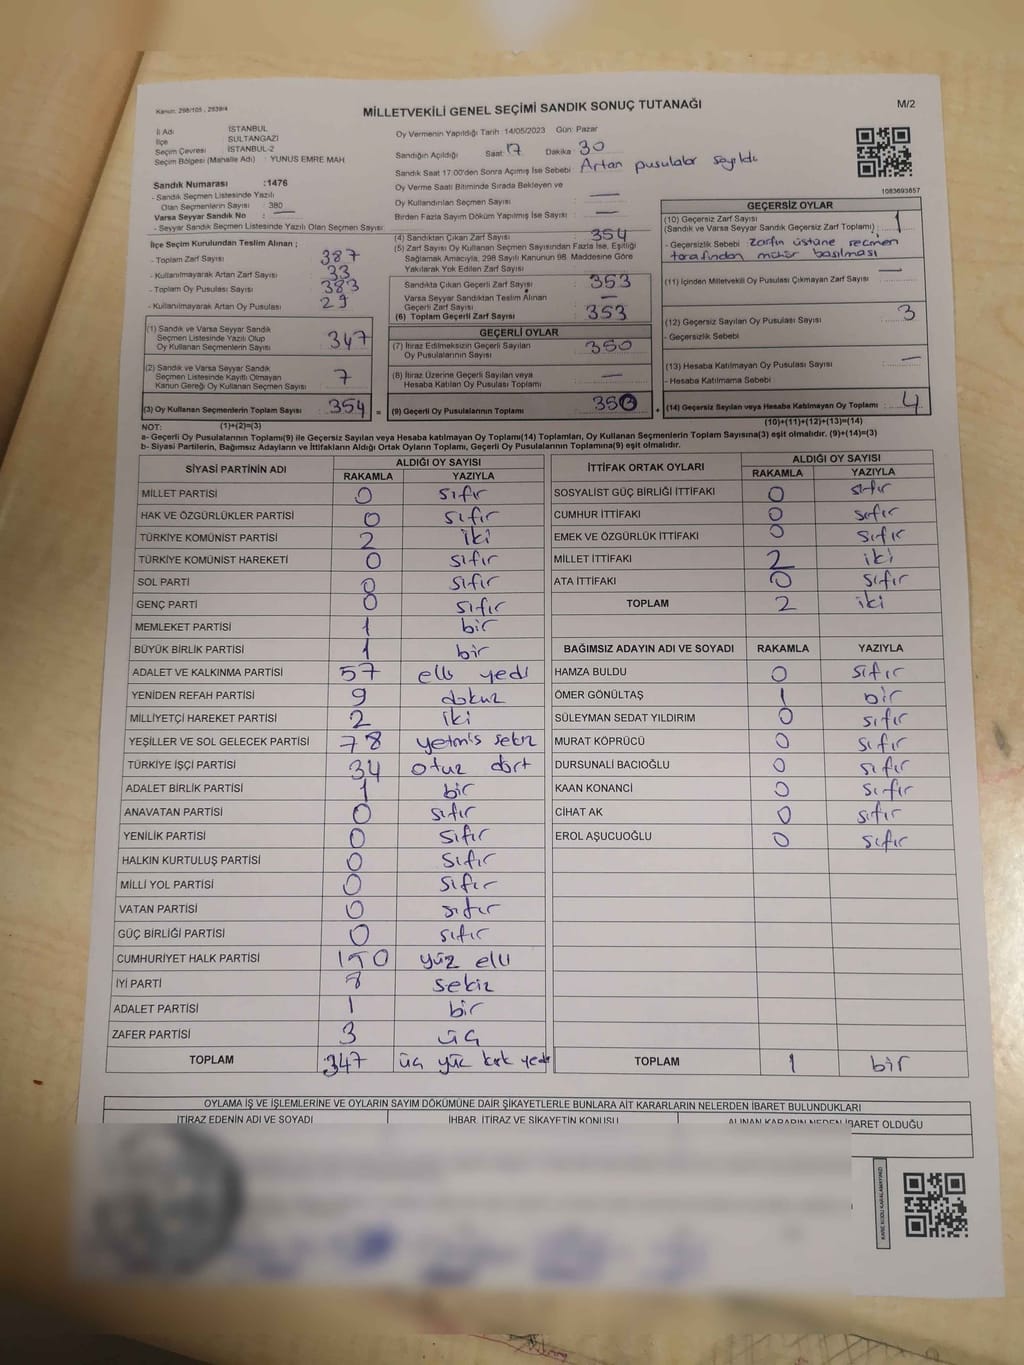 Kanun: 298/105 , 2839/4
MİLLETVEKİLİ GENEL SEÇİMİ SANDIK SONUÇ TUTANAĞI
M/2
İl Adı İSTANBUL
İlçe SULTANGAZİ
Seçim Çevresi İSTANBUL-2
Seçim Bölgesi (Mahalle Adı) : YUNUS EMRE MAH.
Oy Vermenin Yapıldığı Tarih :14/05/2023 Gün: Pazar
Sandığın Açıldığı Saat: 17 Dakika 30
Sandık Saat 17.00'den Sonra Açılmış İse Sebebi Artan pusulalar sayıldı
Oy Verme Saati Bitiminde Sırada Bekleyen ve
Oy Kullandırılan Seçmen Sayısı : —
Birden Fazla Sayım Döküm Yapılmış İse Sayısı : —
1083693857
Sandık Numarası :1476
- Sandık Seçmen Listesinde Yazılı
Olan Seçmenlerin Sayısı : 380
Varsa Seyyar Sandık No : —
- Seyyar Sandık Seçmen Listesinde Yazılı Olan Seçmen Sayısı:
İlçe Seçim Kurulundan Teslim Alınan ;
- Toplam Zarf Sayısı : 387
- Kullanılmayarak Artan Zarf Sayısı : 33
- Toplam Oy Pusulası Sayısı : 383
- Kullanılmayarak Artan Oy Pusulası : 29
(1) Sandık ve Varsa Seyyar Sandık
Seçmen Listesinde Yazılı Olup
Oy Kullanan Seçmenlerin Sayısı : 347
(2) Sandık ve Varsa Seyyar Sandık
Seçmen Listesinde Kayıtlı Olmayan
Kanun Gereği Oy Kullanan Seçmen Sayısı : 7
(3) Oy Kullanan Seçmenlerin Toplam Sayısı : 354 =
(4) Sandıktan Çıkan Zarf Sayısı : 354
(5) Zarf Sayısı Oy Kullanan Seçmen Sayısından Fazla İse, Eşitliği
Sağlamak Amacıyla, 298 Sayılı Kanunun 98. Maddesine Göre
Yakılarak Yok Edilen Zarf Sayısı :
Sandıkta Çıkan Geçerli Zarf Sayısı : 353
Varsa Seyyar Sandıktan Teslim Alınan
Geçerli Zarf Sayısı : —
(6) Toplam Geçerli Zarf Sayısı : 353
GEÇERLİ OYLAR
(7) İtiraz Edilmeksizin Geçerli Sayılan
Oy Pusulalarının Sayısı : 350
(8) İtiraz Üzerine Geçerli Sayılan veya
Hesaba Katılan Oy Pusulası Toplamı : —
(9) Geçerli Oy Pusulalarının Toplamı : 350 +
GEÇERSİZ OYLAR
(10) Geçersiz Zarf Sayısı
(Sandık ve Varsa Seyyar Sandık Geçersiz Zarf Toplamı) : 1
- Geçersizlik Sebebi zarfın üstüne seçmen
tarafından mühür basılması
(11) İçinden Milletvekili Oy Pusulası Çıkmayan Zarf Sayısı : —
(12) Geçersiz Sayılan Oy Pusulası Sayısı : 3
- Geçersizlik Sebebi
(13) Hesaba Katılmayan Oy Pusulası Sayısı : —
- Hesaba Katılmama Sebebi
(14) Geçersiz Sayılan veya Hesaba Katılmayan Oy Toplamı : 4
NOT: (1)+(2)=(3) (10)+(11)+(12)+(13)=(14)
a- Geçerli Oy Pusulalarının Toplamı(9) ile Geçersiz Sayılan veya Hesaba katılmayan Oy Toplamı(14) Toplamları, Oy Kullanan Seçmenlerin Toplam Sayısına(3) eşit olmalıdır. (9)+(14)=(3)
b- Siyasi Partilerin, Bağımsız Adayların ve İttifakların Aldığı Ortak Oyların Toplamı, Geçerli Oy Pusulalarının Toplamına(9) eşit olmalıdır.
SİYASİ PARTİNİN ADI ALDIĞI OY SAYISI
RAKAMLA YAZIYLA
MİLLET PARTİSİ 0 sıfır
HAK VE ÖZGÜRLÜKLER PARTİSİ 0 sıfır
TÜRKİYE KOMÜNİST PARTİSİ 2 iki
TÜRKİYE KOMÜNİST HAREKETİ 0 sıfır
SOL PARTİ 0 sıfır
GENÇ PARTİ 0 sıfır
MEMLEKET PARTİSİ 1 bir
BÜYÜK BİRLİK PARTİSİ 1 bir
ADALET VE KALKINMA PARTİSİ 57 elli yedi
YENİDEN REFAH PARTİSİ 9 dokuz
MİLLİYETÇİ HAREKET PARTİSİ 2 iki
YEŞİLLER VE SOL GELECEK PARTİSİ 78 yetmiş sekiz
TÜRKİYE İŞÇİ PARTİSİ 34 otuz dört
ADALET BİRLİK PARTİSİ 1 bir
ANAVATAN PARTİSİ 0 sıfır
YENİLİK PARTİSİ 0 sıfır
HALKIN KURTULUŞ PARTİSİ 0 sıfır
MİLLİ YOL PARTİSİ 0 sıfır
VATAN PARTİSİ 0 sıfır
GÜÇ BİRLİĞİ PARTİSİ 0 sıfır
CUMHURİYET HALK PARTİSİ 150 yüz elli
İYİ PARTİ 8 sekiz
ADALET PARTİSİ 1 bir
ZAFER PARTİSİ 3 üç
TOPLAM 347 üç yüz kırk yedi
İTTİFAK ORTAK OYLARI ALDIĞI OY SAYISI
RAKAMLA YAZIYLA
SOSYALİST GÜÇ BİRLİĞİ İTTİFAKI 0 sıfır
CUMHUR İTTİFAKI 0 sıfır
EMEK VE ÖZGÜRLÜK İTTİFAKI 0 sıfır
MİLLET İTTİFAKI 2 iki
ATA İTTİFAKI 0 sıfır
TOPLAM 2 iki
BAĞIMSIZ ADAYIN ADI VE SOYADI RAKAMLA YAZIYLA
HAMZA BULDU 0 sıfır
ÖMER GÖNÜLTAŞ 1 bir
SÜLEYMAN SEDAT YILDIRIM 0 sıfır
MURAT KÖPRÜCÜ 0 sıfır
DURSUNALİ BACIOĞLU 0 sıfır
KAAN KONANCİ 0 sıfır
CİHAT AK 0 sıfır
EROL AŞUCUOĞLU 0 sıfır
TOPLAM 1 bir
OYLAMA İŞ VE İŞLEMLERİNE VE OYLARIN SAYIM DÖKÜMÜNE DAİR ŞİKAYETLERLE BUNLARA AİT KARARLARIN NELERDEN İBARET BULUNDUKLARI
İTİRAZ EDENİN ADI VE SOYADI İHBAR, İTİRAZ VE ŞİKAYETİN KONUSU ALINAN KARARIN NEDEN İBARET OLDUĞU
KARE KODU KARALAMAYINIZ!